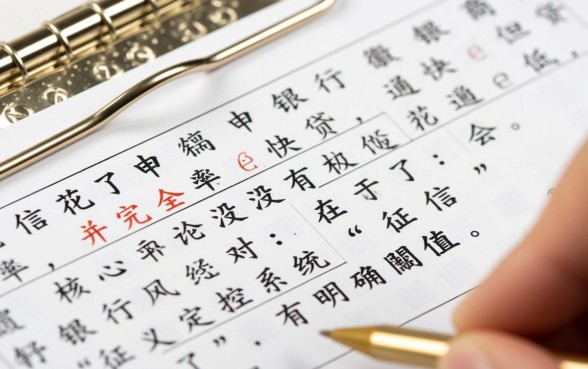 信花了申申银行徽银商
率，并完全率e快贷，通快e但贷
核心论没没有花通e低，
银行风经对：在于了：会。
“征义定控系统“征信”
了”，有明确值。